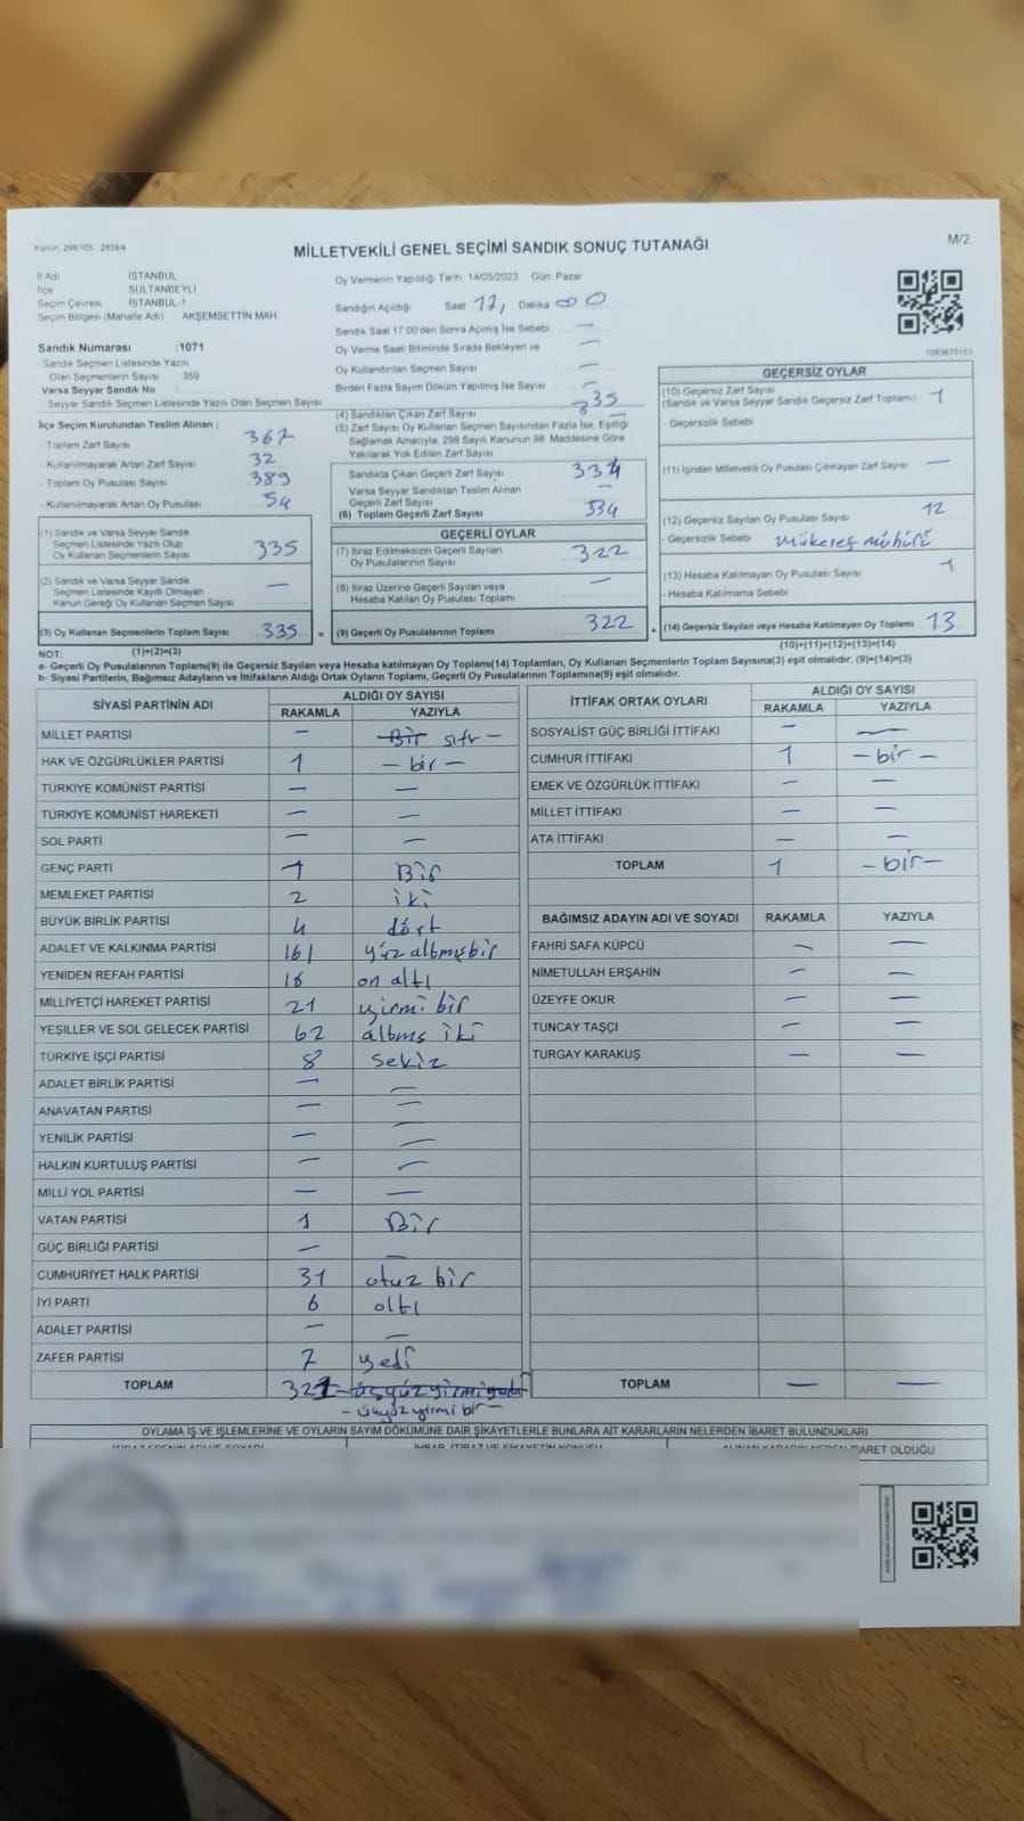 MİLLETVEKİLİ GENEL SEÇİMİ SANDIK SONUÇ TUTANAĞI
M/2
İl Adı İSTANBUL
İlçe SULTANBEYLİ
Seçim Çevresi İSTANBUL-1
Seçim Bölgesi (Mahalle Adı) AKŞEMSETTİN MAH.
Sandık Numarası :1071
Sandık Seçmen Listesinde Yazılı
Olan Seçmenlerin Sayısı 359
Varsa Seyyar Sandık No
Seyyar Sandık Seçmen Listesinde Yazılı Olan Seçmen Sayısı
İlçe Seçim Kurulundan Teslim Alınan :
Toplam Zarf Sayısı 367
- Kullanılmayarak Artan Zarf Sayısı 32
- Toplam Oy Pusulası Sayısı 389
- Kullanılmayarak Artan Oy Pusulası 54
(1) Sandık ve Varsa Seyyar Sandık
Seçmen Listesinde Yazılı Olup
Oy Kullanan Seçmenlerin Sayısı 335
(2) Sandık ve Varsa Seyyar Sandık
Seçmen Listesinde Kayıtlı Olmayan
Kanun Gereği Oy Kullanan Seçmen Sayısı —
(3) Oy Kullanan Seçmenlerin Toplam Sayısı 335 =
(1)+(2)=(3)
Oy Vermenin Yapıldığı Tarih: 14/05/2023 Gün: Pazar
Sandığın Açıldığı Saat 17, Dakika 00
Sandık Saat 17:00'den Sonra Açılmış İse Sebebi —
Oy Verme Saati Bitiminde Sırada Bekleyen ve —
Oy Kullandırılan Seçmen Sayısı —
Birden Fazla Sayım Döküm Yapılmış İse Sayısı —
(4) Sandıktan Çıkan Zarf Sayısı 335
(5) Zarf Sayısı Oy Kullanan Seçmen Sayısından Fazla İse, Eşitliği —
Sağlamak Amacıyla, 298 Sayılı Kanunun 98. Maddesine Göre
Yakılarak Yok Edilen Zarf Sayısı
Sandıkta Çıkan Geçerli Zarf Sayısı 334
Varsa Seyyar Sandıktan Teslim Alınan
Geçerli Zarf Sayısı —
(6) Toplam Geçerli Zarf Sayısı 334
GEÇERLİ OYLAR
(7) İtiraz Edilmeksizin Geçerli Sayılan
Oy Pusulalarının Sayısı 322
(8) İtiraz Üzerine Geçerli Sayılan veya
Hesaba Katılan Oy Pusulası Toplamı —
(9) Geçerli Oy Pusulalarının Toplamı 322 +
GEÇERSİZ OYLAR
(10) Geçersiz Zarf Sayısı 1
(Sandık ve Varsa Seyyar Sandık Geçersiz Zarf Toplamı)
- Geçersizlik Sebebi
(11) İçinden Milletvekili Oy Pusulası Çıkmayan Zarf Sayısı —
(12) Geçersiz Sayılan Oy Pusulası Sayısı 12
- Geçersizlik Sebebi Mükerer mühür
(13) Hesaba Katılmayan Oy Pusulası Sayısı 1
- Hesaba Katılmama Sebebi
(14) Geçersiz Sayılan veya Hesaba Katılmayan Oy Toplamı 13
(10)+(11)+(12)+(13)=(14)
NOT:
a- Geçerli Oy Pusulalarının Toplamı(9) ile Geçersiz Sayılan veya Hesaba katılmayan Oy Toplamı(14) Toplamları, Oy Kullanan Seçmenlerin Toplam Sayısına(3) eşit olmalıdır. (9)+(14)=(3)
b- Siyasi Partilerin, Bağımsız Adayların ve İttifakların Aldığı Ortak Oyların Toplamı, Geçerli Oy Pusulalarının Toplamına(9) eşit olmalıdır.
SİYASİ PARTİNİN ADI ALDIĞI OY SAYISI
RAKAMLA YAZIYLA
MİLLET PARTİSİ — Bir sıfır —
HAK VE ÖZGÜRLÜKLER PARTİSİ 1 — bir —
TÜRKİYE KOMÜNİST PARTİSİ — —
TÜRKİYE KOMÜNİST HAREKETİ — —
SOL PARTİ — —
GENÇ PARTİ 1 Bir
MEMLEKET PARTİSİ 2 iki
BÜYÜK BİRLİK PARTİSİ 4 dört
ADALET VE KALKINMA PARTİSİ 161 yüz altmışbir
YENİDEN REFAH PARTİSİ 16 on altı
MİLLİYETÇİ HAREKET PARTİSİ 21 yirmi bir
YEŞİLLER VE SOL GELECEK PARTİSİ 62 altmış iki
TÜRKİYE İŞÇİ PARTİSİ 8 sekiz
ADALET BİRLİK PARTİSİ — —
ANAVATAN PARTİSİ — —
YENİLİK PARTİSİ — —
HALKIN KURTULUŞ PARTİSİ — —
MİLLİ YOL PARTİSİ — —
VATAN PARTİSİ 1 Bir
GÜÇ BİRLİĞİ PARTİSİ — —
CUMHURİYET HALK PARTİSİ 31 otuz bir
İYİ PARTİ 6 altı
ADALET PARTİSİ — —
ZAFER PARTİSİ 7 yedi
TOPLAM 321
— üçyüz yirmi bir —
İTTİFAK ORTAK OYLARI ALDIĞI OY SAYISI
RAKAMLA YAZIYLA
SOSYALİST GÜÇ BİRLİĞİ İTTİFAKI — —
CUMHUR İTTİFAKI 1 — bir —
EMEK VE ÖZGÜRLÜK İTTİFAKI — —
MİLLET İTTİFAKI — —
ATA İTTİFAKI — —
TOPLAM 1 — bir —
BAĞIMSIZ ADAYIN ADI VE SOYADI RAKAMLA YAZIYLA
FAHRİ SAFA KÜPCÜ — —
NİMETULLAH ERŞAHİN — —
ÜZEYFE OKUR — —
TUNCAY TAŞÇI — —
TURGAY KARAKUŞ — —
TOPLAM — —
OYLAMA İŞ VE İŞLEMLERİNE VE OYLARIN SAYIM DÖKÜMÜNE DAİR ŞİKAYETLERLE BUNLARA AİT KARARLARIN NELERDEN İBARET BULUNDUKLARI
OLDUĞU